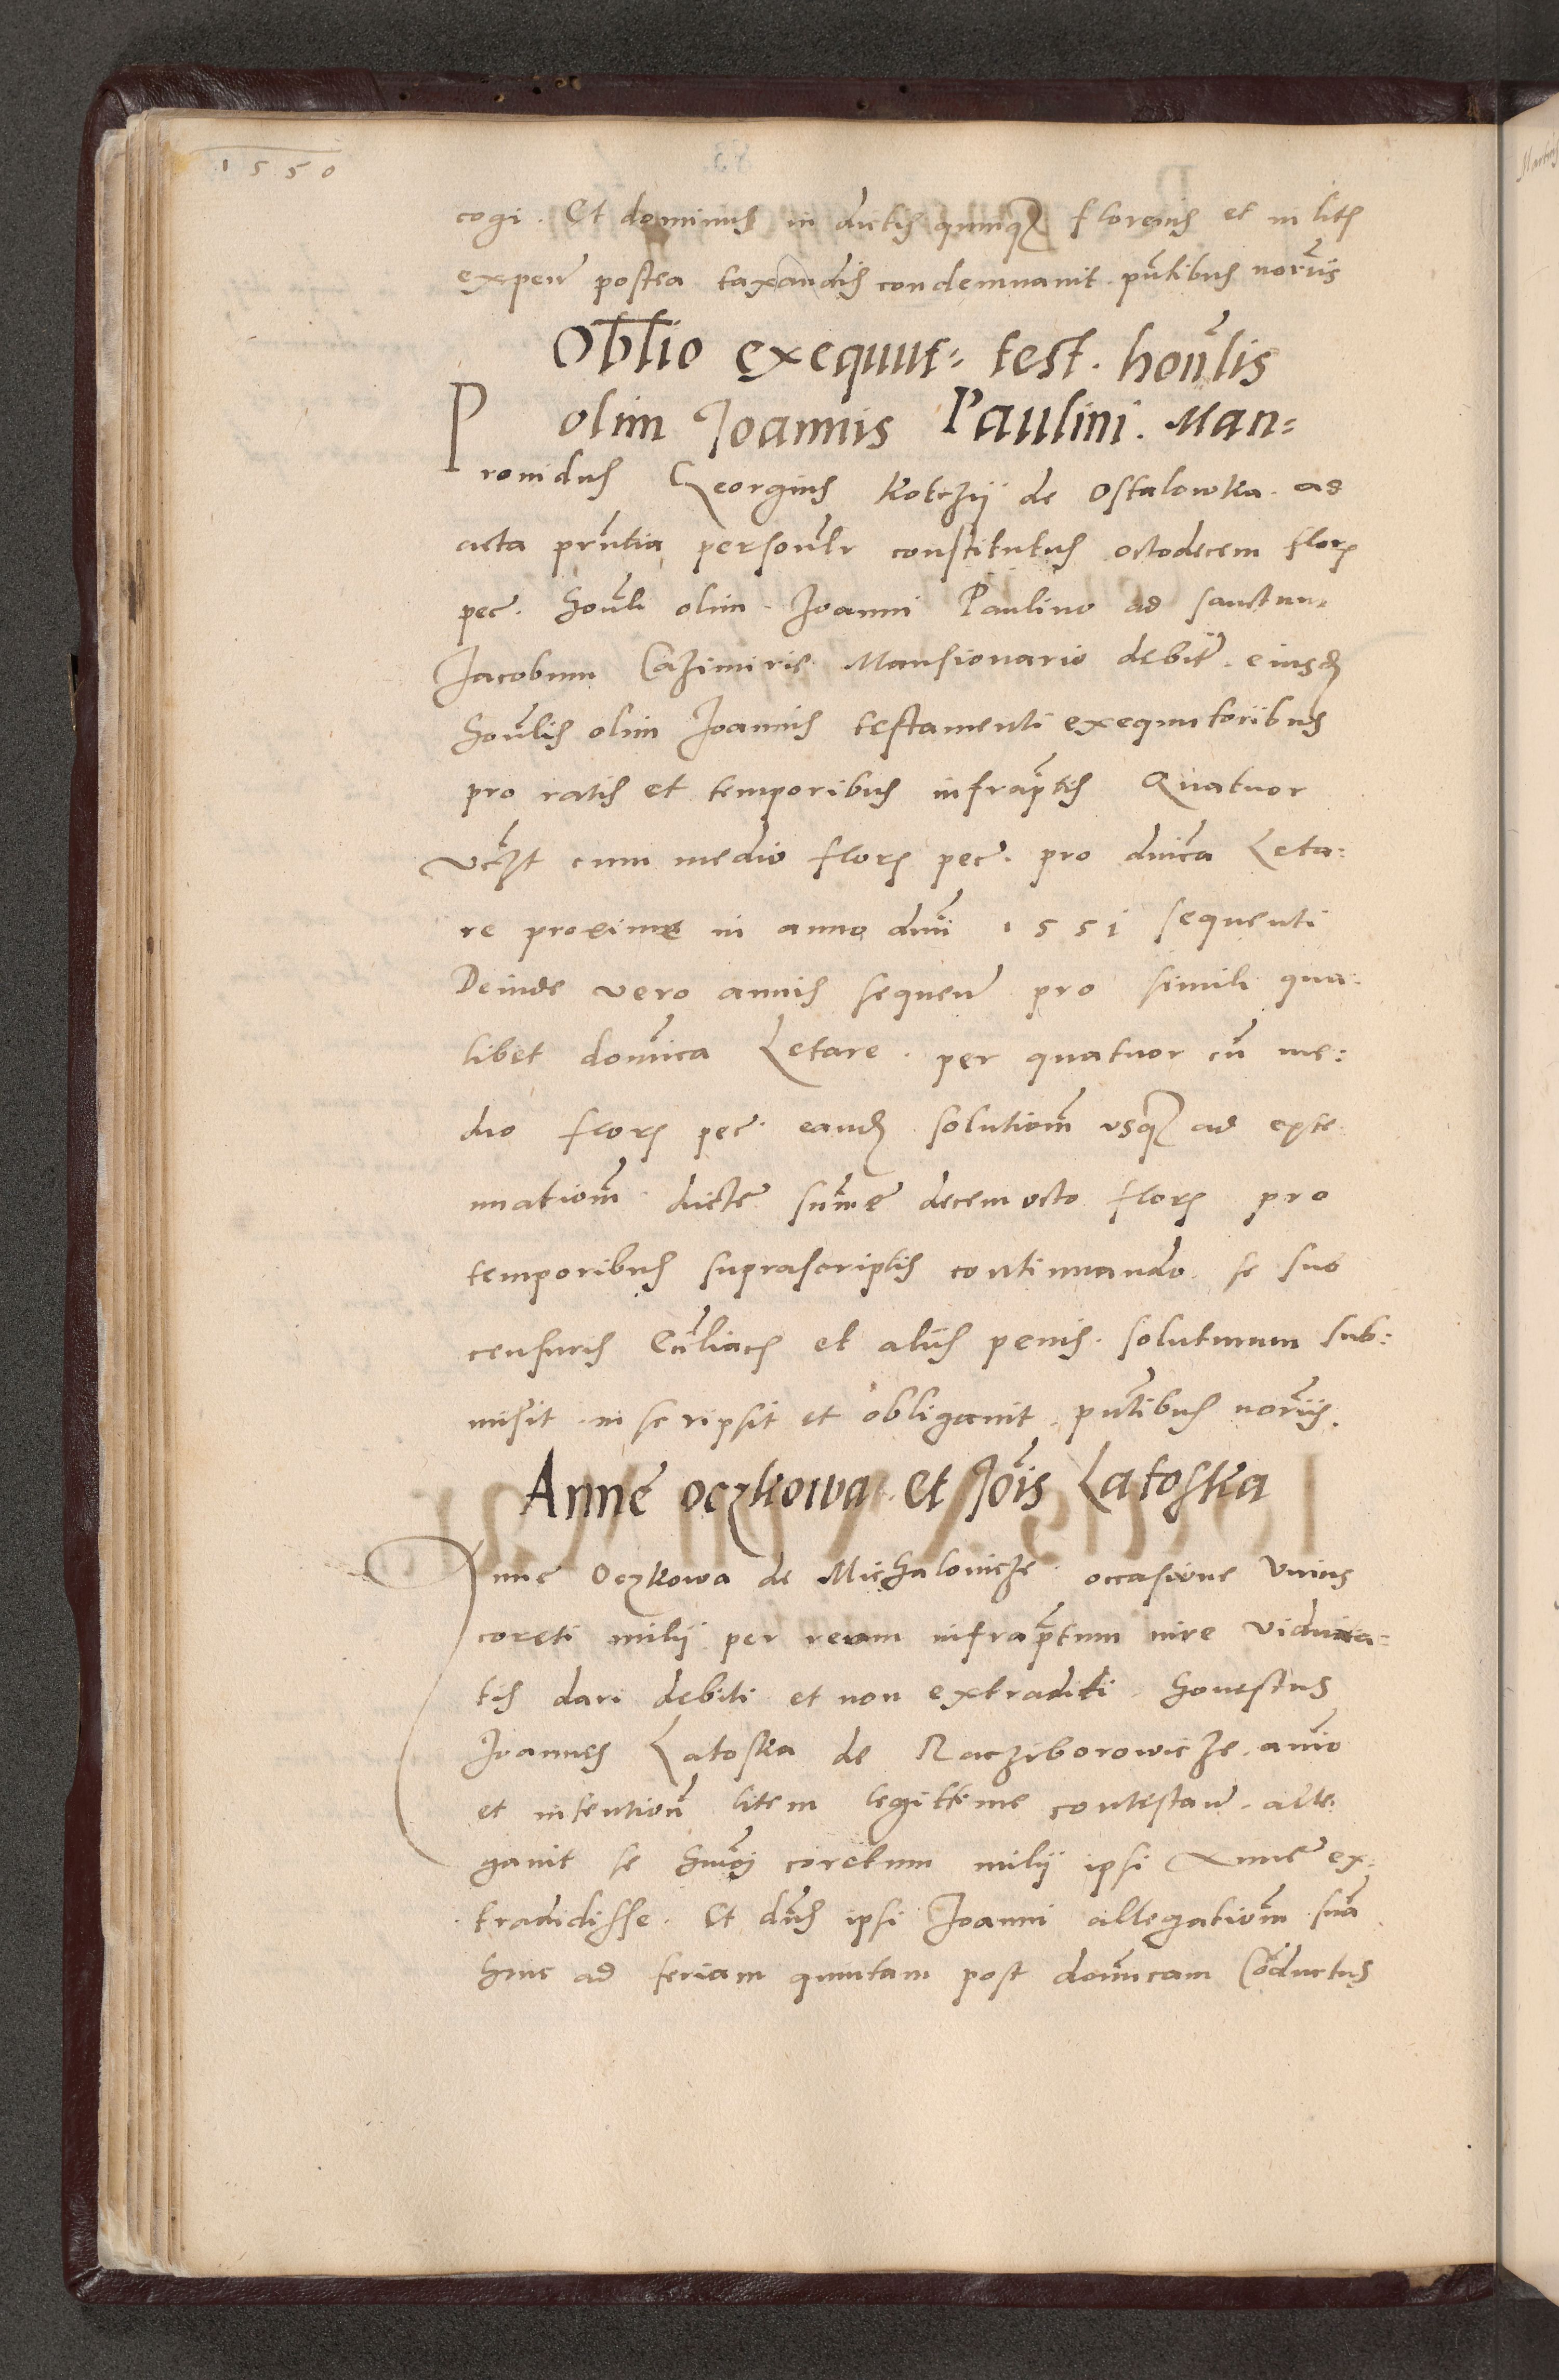 1550
cogi. Et dominus in dictis quinq₃ florenis et in litis
expen̄ postea taxandis condemnauit. pn̄tibus norūis
Obl̄io exequut: test. hon̄lis
olim Joannis Paulini. Man:
Prouidus Georgius Kotczij de Ostalowka. ad
acta prn̄tia personl̄r constitutus octodecem flor₎
pec̄. hon̄li olim. Joanni Paulino ad sanctum
Jacobum Cazimirie Mansionario debit̄. eiusd₎
hon̄lis olim Joannis testamenti exequutoribus
pro ratis et temporibus infrap̄tis Quatuor
vc̄zt cum medio flor₎ pec̄. pro dnīca Leta:
re proxime in anno dnīi 1551 sequenti
Deinde vero annis sequen̄ pro simili qua:
libet domīca Letare. per quatuor cū me:
dio flor₎ pec̄. eand₎ solutiom̄ vsq₃ ad exte
nuatiom̄ dicte sum̄e decem octo flor₎ pro
temporibus suprascriptis continuando. se sub
censuris Ecc̄liacis et alijs penis. soluturum sub:
misit inscripsit et obligauit. pn̄tibus norīis.
Anne oczkowa et Jōis Latoska
Anne Oczkowa de Michalouicze occasione Vnius
coreti milij per reum infrap̄tum iure viduita:
tis dari debiti et non extraditi. honestus
Joannes Latoska de Racziborowicze. animō
et intentioñ litem legittime contestan̄. alle
gauit se hmōi coretum milij ipsi Anne ex:
tradidisse. Et dn̄s ipsi Joanni allegatiom̄ suā
hinc ad feriam quintam post domīcam Cōductus